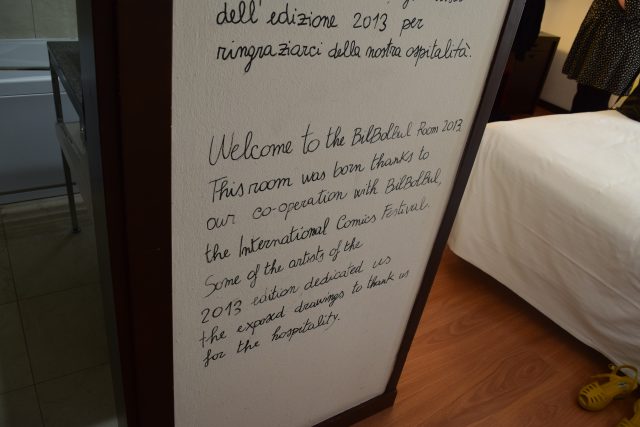 dell'edizione 2013 per
ringraziarci della nostra ospitalità.
Welcome to the BilBolBul Room 2013.
This room was born thanks to
our co-operation with BilBolBul,
the International Comics Festival.
Some of the artists of the
2013 edition dedicated us
the exposed drawings to thank us
for the hospitality.